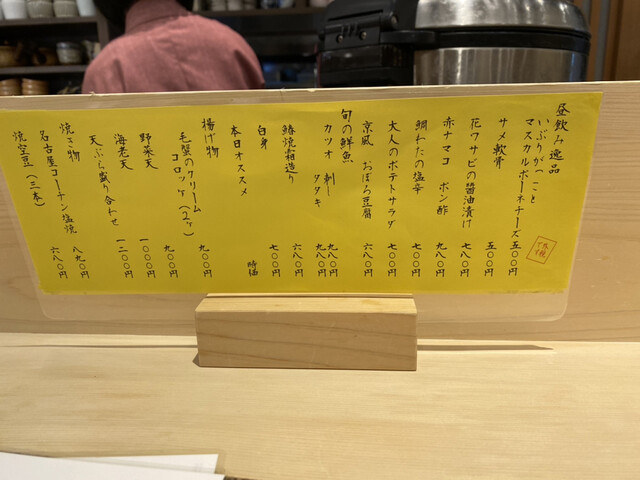 昼飲み逸品
いぶりがっこと
マスカルポーネチーズ 五〇〇円
サメ軟骨 五〇〇円
花ワサビの醤油漬け 七八〇円
赤ナマコ ポン酢 九八〇円
鯛わたの塩辛 七〇〇円
大人のポテトサラダ 七〇〇円
京風 おぼろ豆腐 六八〇円
旬の鮮魚
カツオ 刺し 九八〇円
タタキ 九八〇円
鰆焼霜造り 六八〇円
白身 七〇〇円
本日オススメ 時価
揚げ物 九〇〇円
毛蟹のクリーム
コロッケ(2ヶ) 九〇〇円
野菜天 一〇〇〇円
海老天 一二〇〇円
天ぷら盛り合わせ
焼き物 八九〇円
名古屋コーチン塩焼 六八〇円
焼空豆(三本)